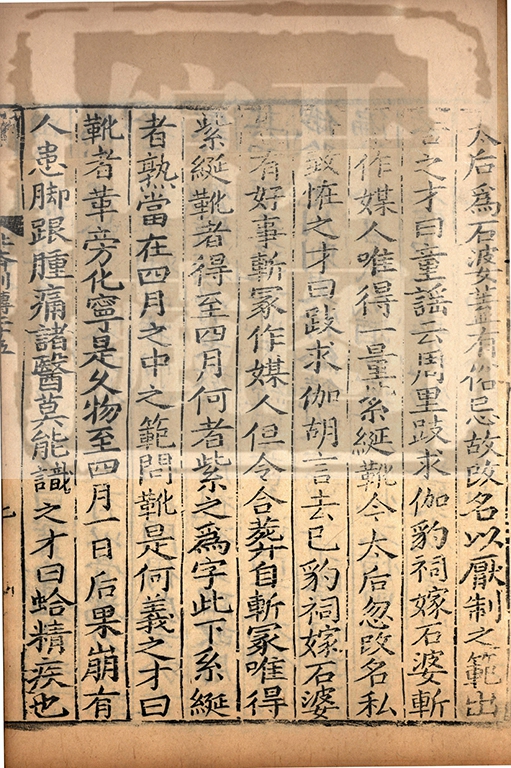 太后爲石婆盖有俗忌故改名以厭制之範出
告之才曰童謡云周里跂求伽豹祠嫁石婆斬
作媒人唯得一量紫綖靴今太后忽改名私
致恠之才曰跂求伽胡言去已豹祠嫁石婆
有好事斬冢作媒人但令合葬自斬冢唯得
紫綖靴者得至四月何者紫之爲字此下系綖
者熟當在四月之中之範問靴是何義之才曰
靴者革旁化寧是久物至四月一日后果崩有
人患脚跟腫痛諸醫莫能識之才曰蛤精疾也